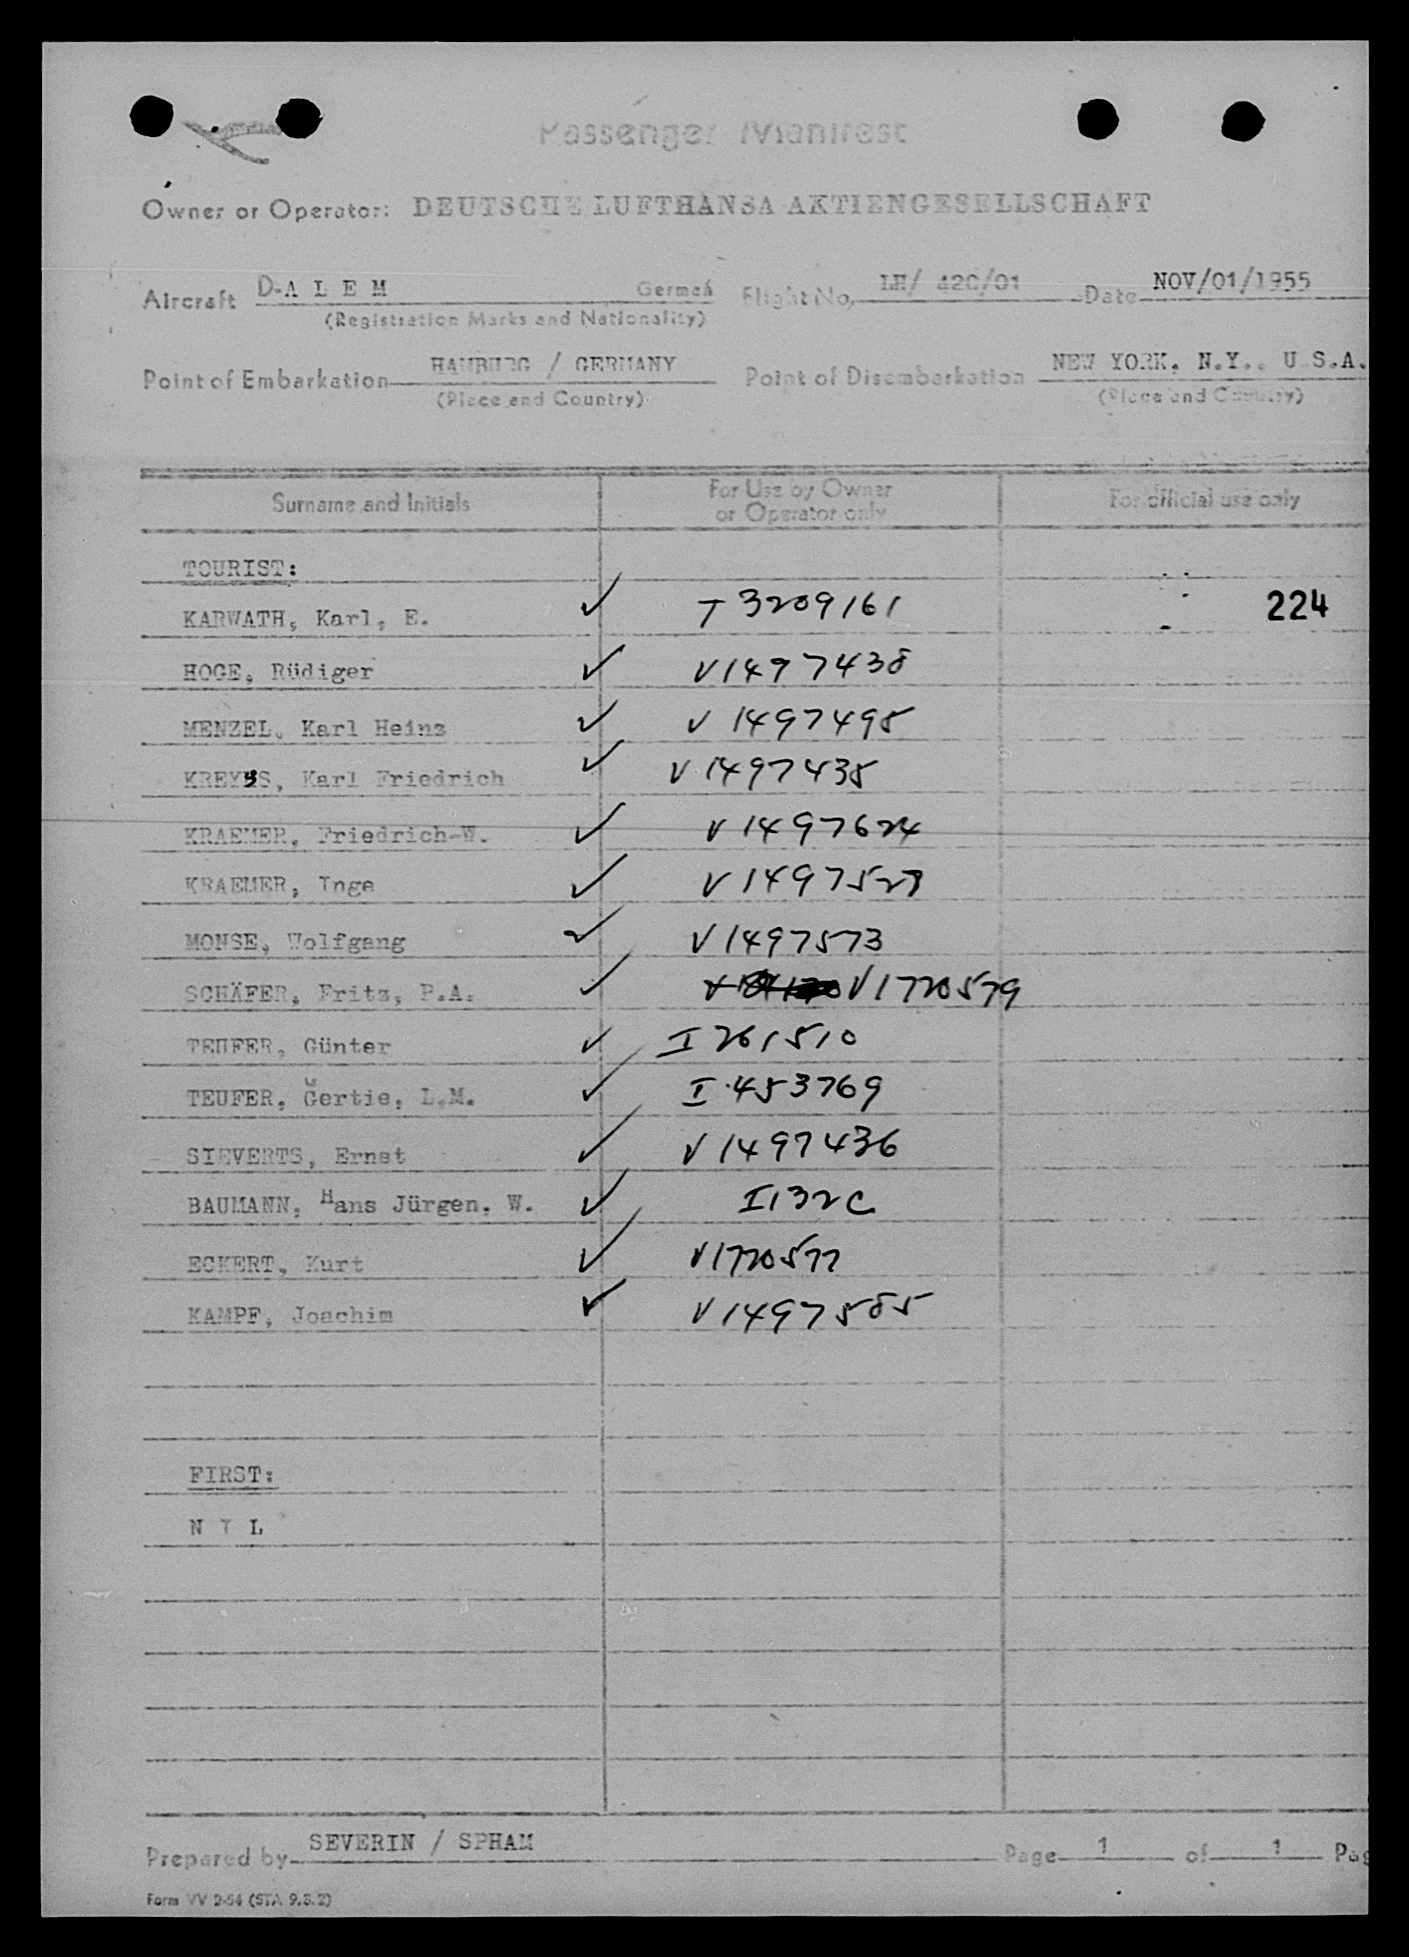 Passenger Manifest
Owner or Operator: DEUTSCHE LUFTHANSA AKTIENGESELLSCHAFT
Aircraft D-A L E M German Flight No, LH/ 420/01 Date NOV/01/1955
(Registration Marks and Nationality)
Point of Embarkation HAMBURG / GERMANY Point of Disembarkation NEW YORK, N.Y., U.S.A.
(Place and Country) (Place and Country)
Surname and Initials For Use by Owner or Operator only For official use only
TOURIST:
KARWATH, Karl, E. ✓ T 3209161 224
HOGE, Rüdiger ✓ V1497438
MENZEL, Karl Heinz ✓ V 1497495
KREYSS, Karl Friedrich ✓ V 1497435
KRAEMER, Friedrich-W. ✓ V 1497624
KRAEMER, Inge ✓ V 1497523
MONSE, Wolfgang ✓ V 1497573
SCHÄFER, Fritz, P.A. ✓ V1770579
TEUFER, Günter ✓ I 261510
TEUFER, Gertie, L.M. ✓ I 453769
SIEVERTS, Ernst ✓ V 1497436
BAUMANN, Hans Jürgen, W. ✓ I 132C
ECKERT, Kurt ✓ V1770577
KAMPF, Joachim ✓ V 1497585
FIRST:
N I L
Prepared by SEVERIN / SPHAM Page 1 of 1 Pag
Form VV 2-54 (STA 9.3.2)